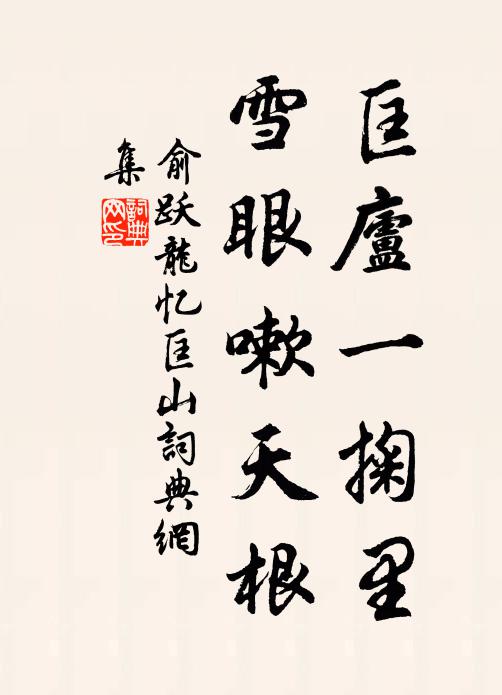 匡廬一掬里
雪眼嗽天根
俞跃龍忆匡山詞典網
集
詞典网印